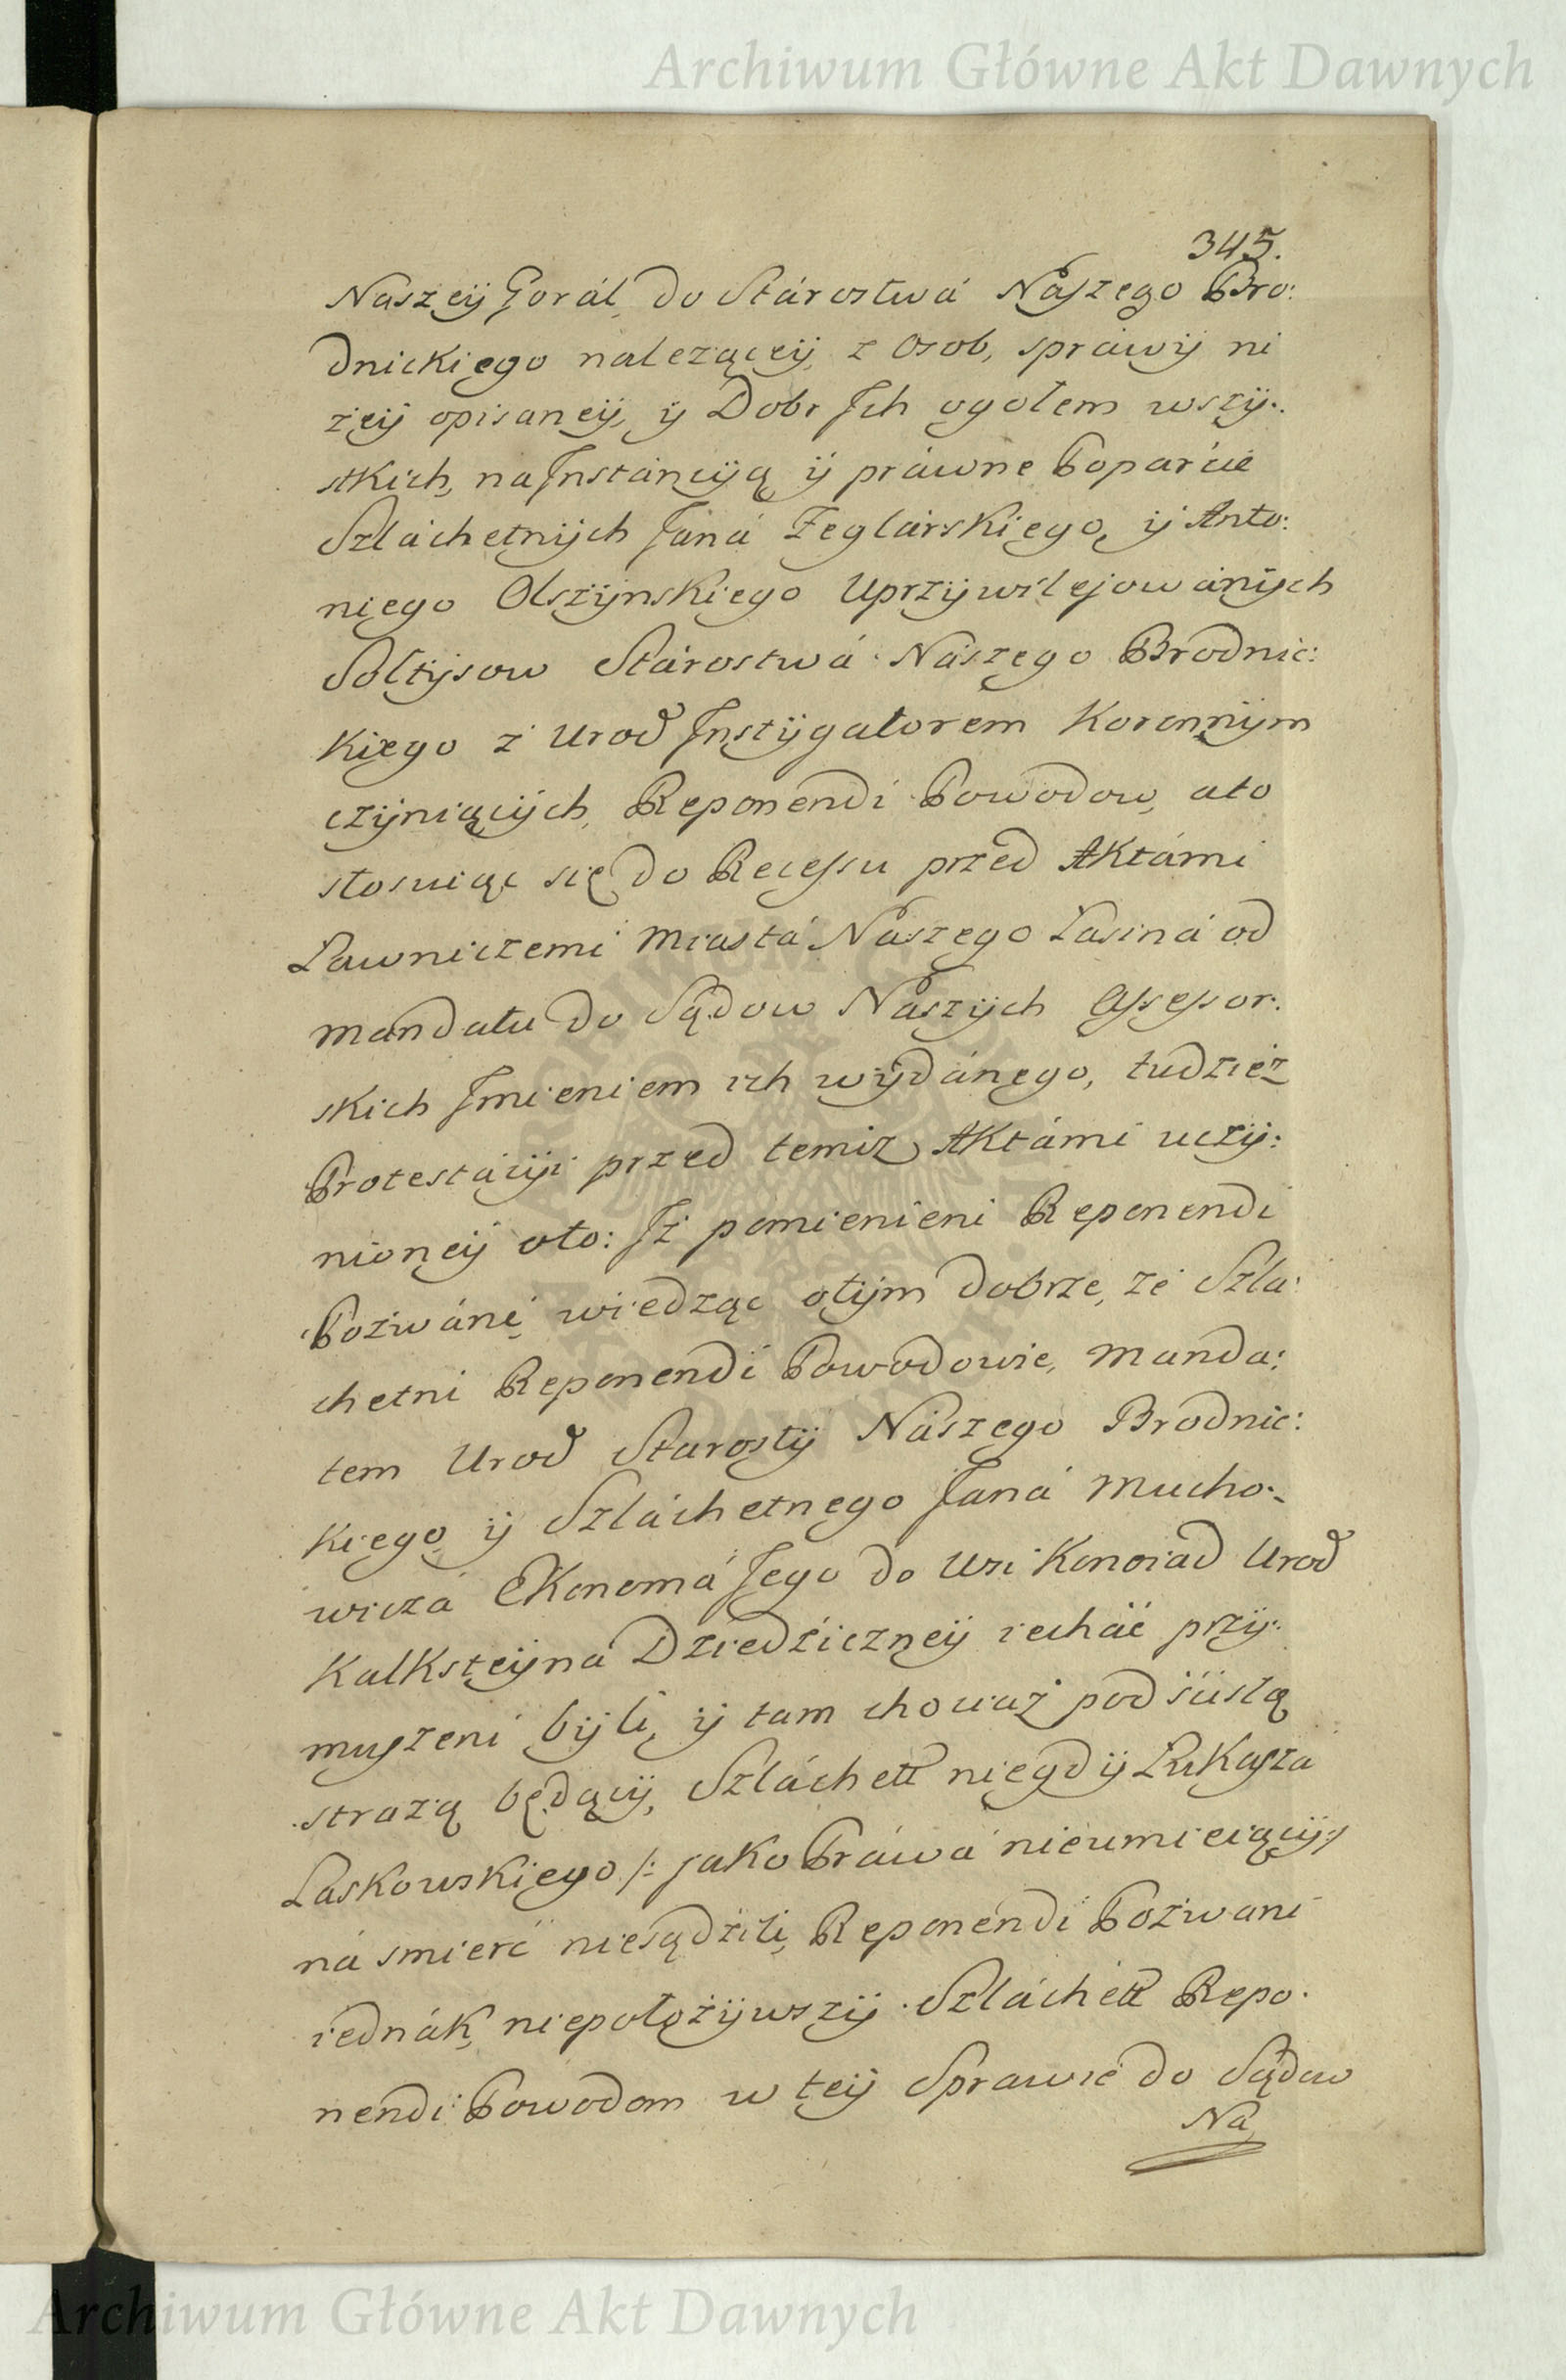 Archiwum Główne Akt Dawnych
345.
Naszeÿ Goral, do Stárostwá Nászego Bro:
dnickiego nalezącey, z Osob, sprawÿ ni
zeÿ opisaneÿ, ÿ Dobr Jch ogołem wszÿ:
stkich, na Jnstáncÿą ÿ práwne Poparcie
Szláchetnÿch Janá Zeglárskiego, ÿ Anto:
niego Olszÿnskiego Uprzÿwilejowánÿch
Sołtÿsow Stárostwá Nászego Brodnic:
kiego z Urod Jnstÿgatorem Koronnÿm
czÿniącÿch, Reponendi Powodow, ato
stosuiąc się do Recessu przed Aktámi
Ławniczemi Miastá Nászego Łasiná od
Mandatu do Sądow Nászÿch Assessor:
skich Jmieniem ich wÿdánego, tudziez
Protestácÿi przed temiz Aktámi uczÿ:
nioneÿ oto: Jż pomienieni Reponendi
Pozwáni, wiedząc otÿm dobrze, ze Szla:
chetni Reponendi Powodowie, Manda:
tem Urod Starostÿ Nászego Brodnic:
kiego, ÿ Szláchetnego Janá Mucho:
wiczá Ekonomá Jego do Wsi Konoiad Urod
Kalksteÿná Dziedziczneÿ iecháć przÿ:
muszeni bÿli, ÿ tam chociaz pod scisłą
strażą będącÿ, Szláchett niegdÿ Łukaszá
Laskowskiego /: jako Práwá nieumieiącÿ:/
ná smierć niesądzili, Reponendi Pozwani
iednák, niepołozÿwszÿ Szláchett Repo:
nendi Powodom w teÿ Sprawie do Sądow
Na
ARCHIWUM GŁÓWNE AKT DAWNYCH
Archiwum Główne Akt Dawnych